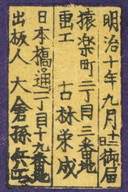 明治十年九月十二日御届
猿楽町二丁目三番地
画工 古林栄成
日本橋通一丁目十九番地
出版人 大倉孫兵衛